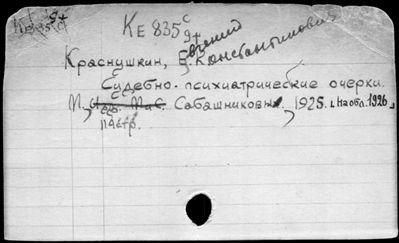 КЕ 835 с
g+
Краснушкин, Евгений Константинович
Судебно-психиатрические очерки.
М., М. и С. Сабашниковы. 1925. [на обл. 1926]
патр.